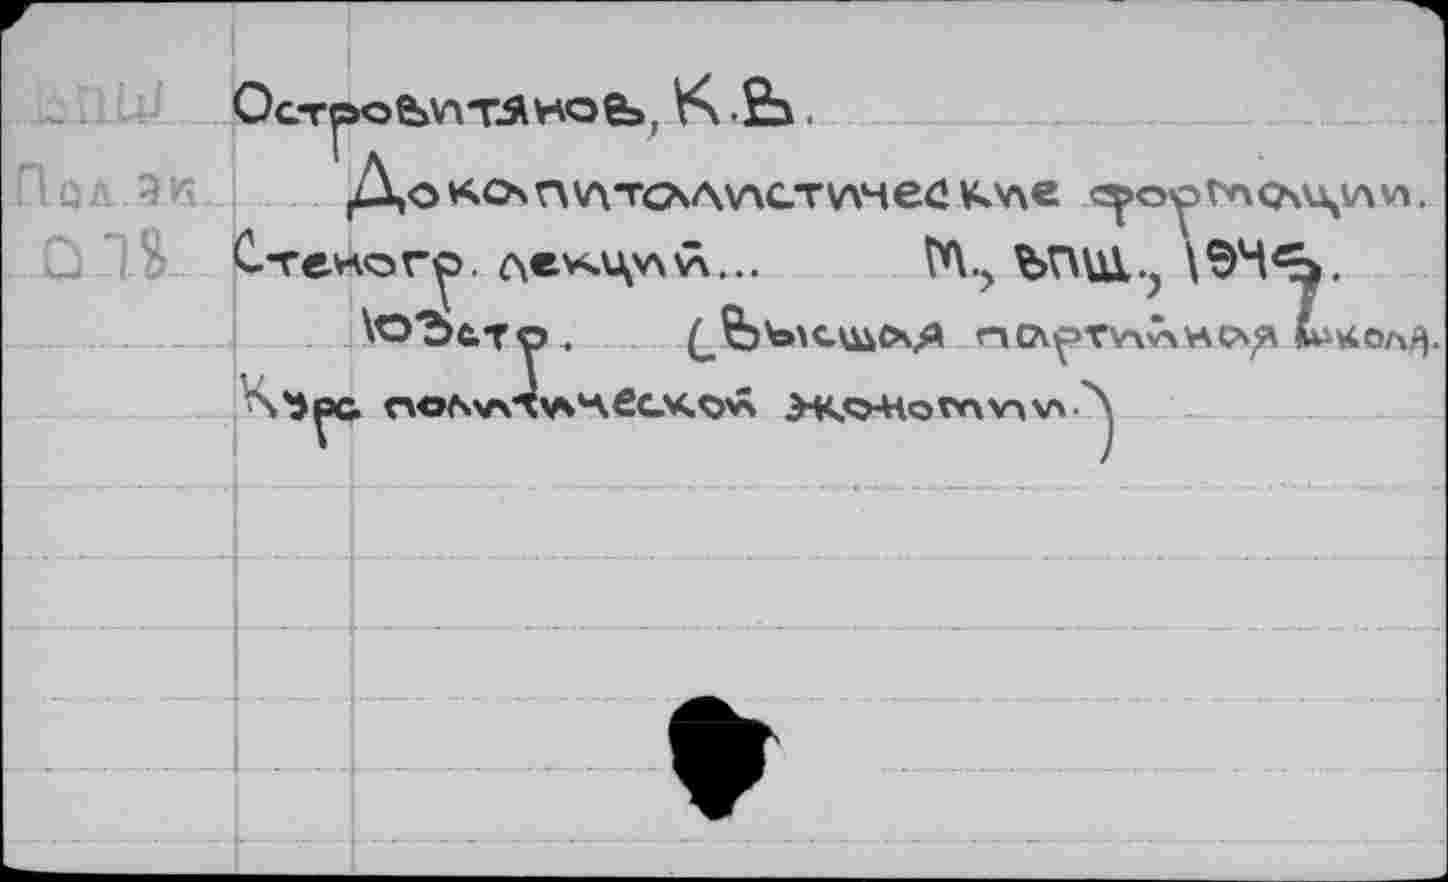 ВПШ
Островитянов, К.В.
Пол. эк
Докапиталистические формации.
О 78
Стеногр. лекций... М., ВПШ.,
стр. (Высшая партийная школа.
Курс политической экономии.)